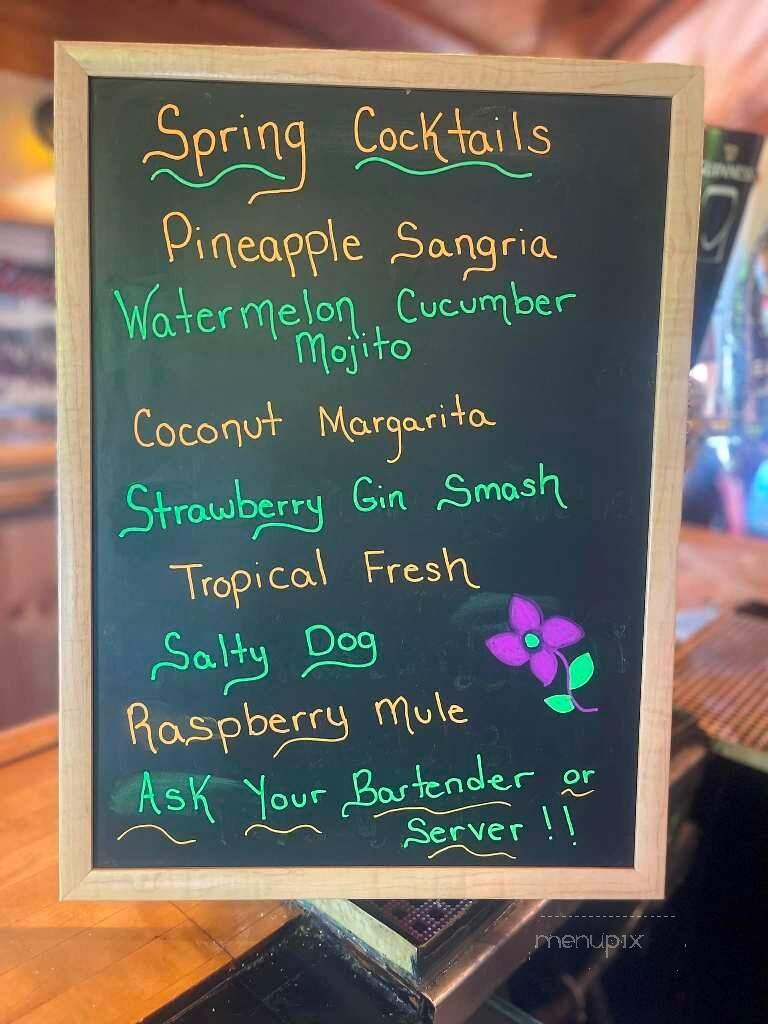 Spring Cocktails
Pineapple Sangria
Watermelon Cucumber
Mojito
Coconut Margarita
Strawberry Gin Smash
Tropical Fresh
Salty Dog
Raspberry Mule
Ask Your Bartender or
Server !!
GUINNESS
menupix